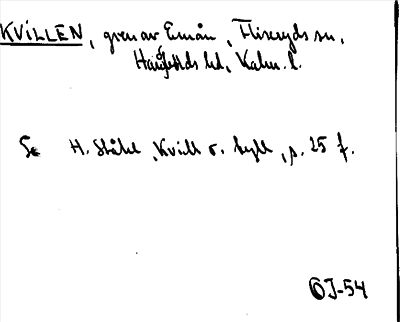 KVILLEN, gren av Emån, Fliseryds sn,
Handbörds hd, Kalm. l.
Se H. Ståhl, Kvill o. tyll, p. 25 f.
OJ-54